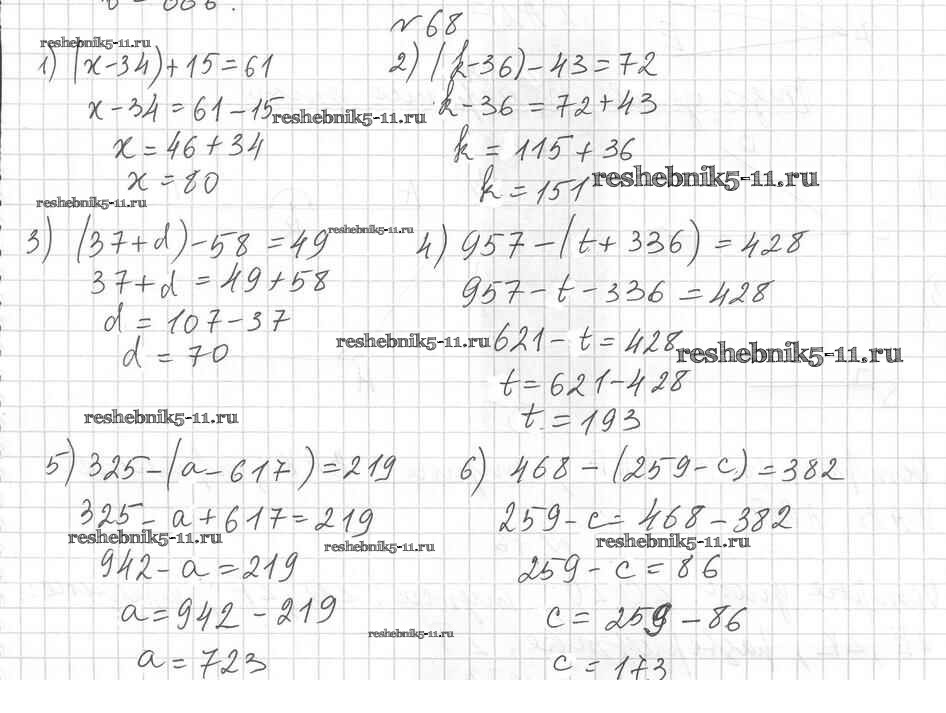 №68
reshebnik5-11.ru
1) (x-34)+15=61
x-34=61-15
reshebnik5-11.ru
x=46+34
x=80
reshebnik5-11.ru
2) (k-36)-43=72
k-36=72+43
k=115+36
k=151
reshebnik5-11.ru
3) (37+d)-58=49
reshebnik5-11.ru
37+d=49+58
d=107-37
d=70
4) 957-(t+336)=428
957-t-336=428
reshebnik5-11.ru
621-t=428
reshebnik5-11.ru
t=621-428
t=193
reshebnik5-11.ru
5) 325-(a-617)=219
325-a+617=219
reshebnik5-11.ru
reshebnik5-11.ru
942-a=219
a=942-219
reshebnik5-11.ru
a=723
6) 468-(259-c)=382
259-c=468-382
reshebnik5-11.ru
259-c=86
c=259-86
c=173